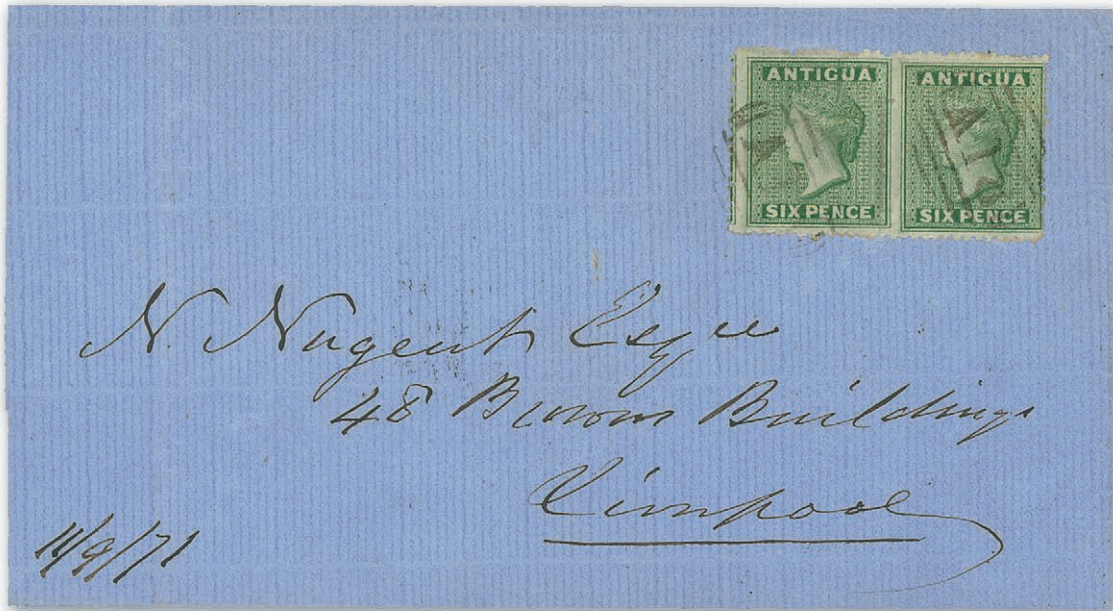 ANTIGUA ANTIGUA
SIX PENCE SIX PENCE
N. Nugent Esqre
48 Browns Buildings
Liverpool
11/9/71